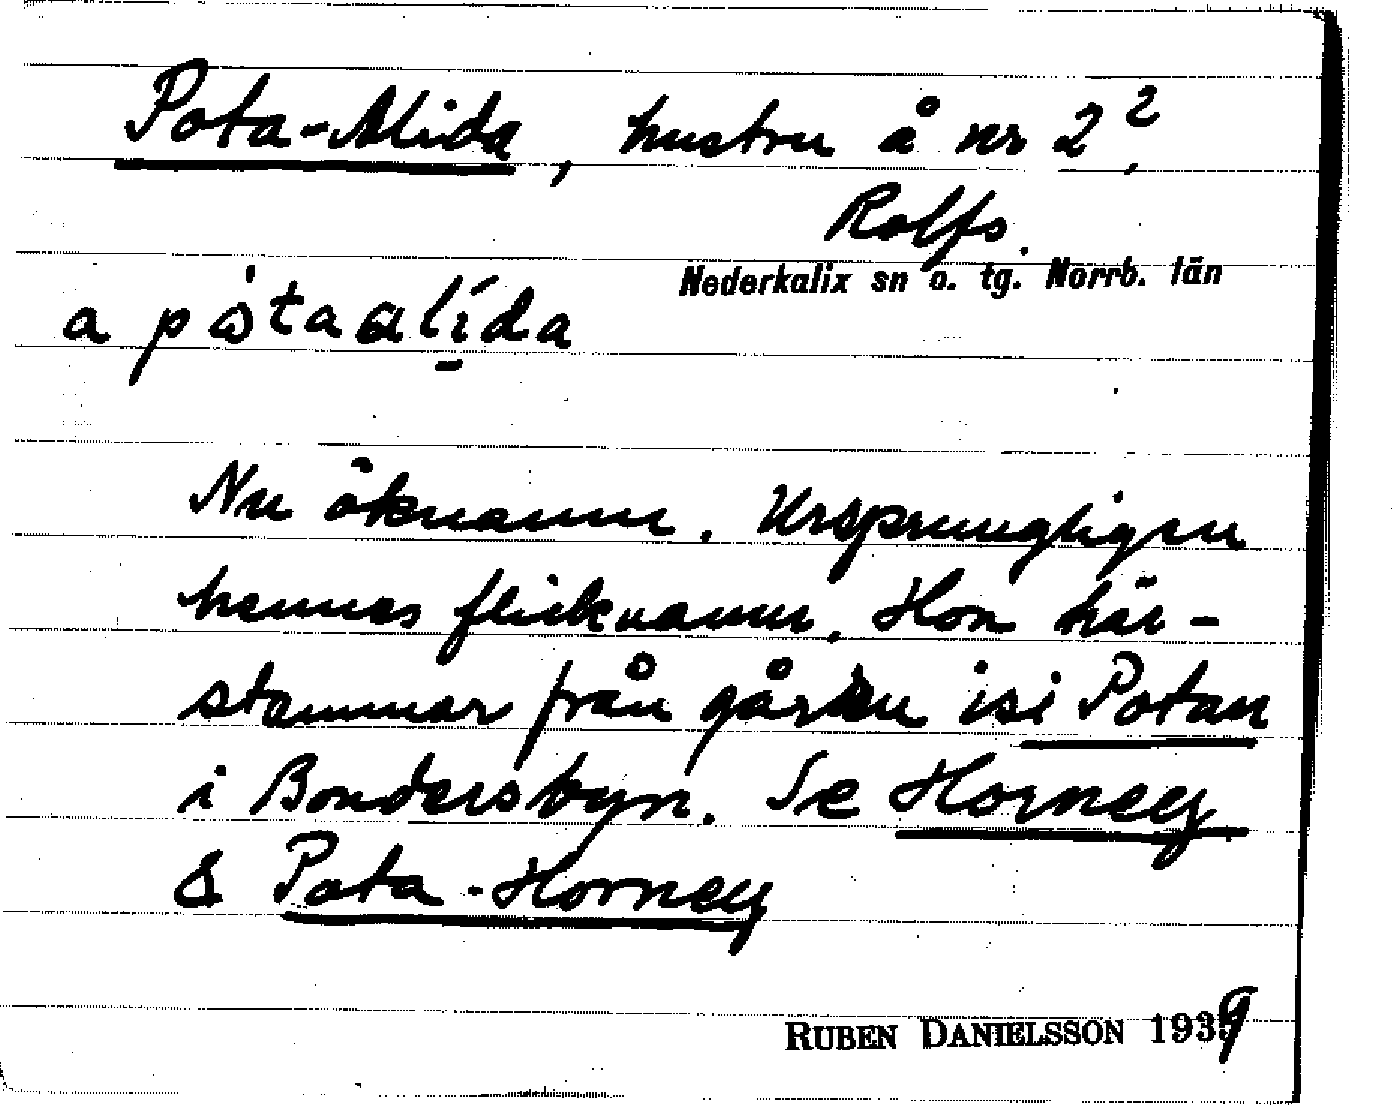 Pota-Alida, hustru å nr 2²,
Rolfs.
Nederkalix sn o. tg. Norrb. län
a pότaɑlída
Nu öknamn. Ursprungligen
hennes flicknamn. Hon här-
stammar från gården isi Potan
i Bondersbyn. Se Horney
& Pota-Horney
RUBEN DANIELSSON 1939